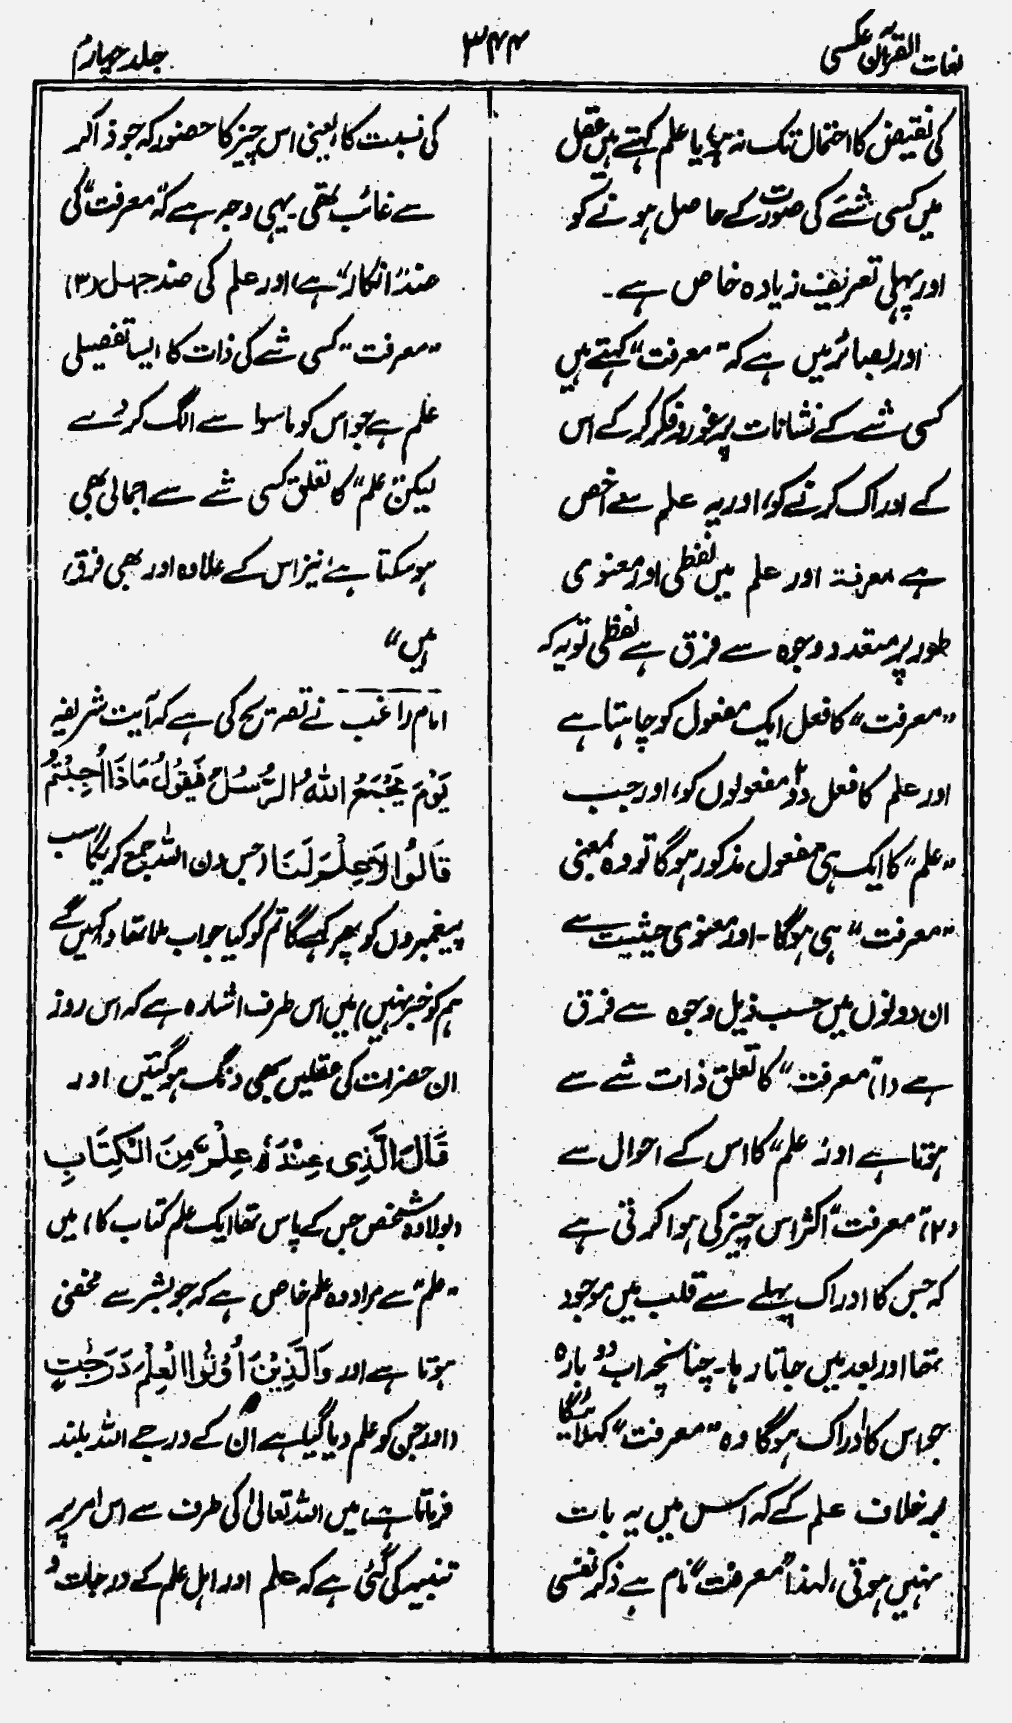 لغات القرآن عکسی
۳۴۴
جلد چہارم
کی نقیض کا احتمال تک نہ ہو، یا علم کہتے ہیں عقل
میں کسی شئے کی صورت کے حاصل ہونے کو
اور پہلی تعریف زیادہ خاص ہے۔
اور بصائر میں ہے کہ "معرفت" کہتے ہیں
کسی شے کے نشانات پر غور و فکر کر کے اس
کے ادراک کرنے کو، اور یہ علم سے اخص
ہے معرفۃ اور علم میں لفظی اور معنوی
طور پر متعدد وجوہ سے فرق ہے لفظی تو یہ کہ
"معرفت" کا فعل ایک مفعول کو چاہتا ہے
اور علم کا فعل دو مفعولوں کو، اور جب
"علم" کا ایک ہی مفعول مذکور ہوگا تو وہ بمعنی
"معرفت" ہی ہوگا۔ اور معنوی حیثیت سے
ان دونوں میں حسب ذیل وجوہ سے فرق
ہے (۱) "معرفت" کا تعلق ذات شے سے
ہوتا ہے اور "علم" کا اس کے احوال سے
(۲) "معرفت" اکثر اس چیز کی ہوا کرتی ہے
کہ جس کا ادراک پہلے سے قلب میں موجود
تھا اور بعد میں جاتا رہا۔ چنانچہ اب دو بارہ
جو اس کا ادراک ہوگا وہ "معرفت" کہلائیگا
برخلاف علم کے کہ اس میں یہ بات
نہیں ہوتی، لہذا "معرفت" نام ہے ذکر نفسی
کی نسبت کا، یعنی اس چیز کا حضور کہ جو ذاکر
سے غائب تھی۔ یہی وجہ ہے کہ "معرفت" کی
ضد "انکار" ہے، اور علم کی ضد جہل (۳)
"معرفت" کسی شے کی ذات کا ایسا تفصیلی
علم ہے جو اس کو ماسوا سے الگ کر دے
لیکن "علم" کا تعلق کسی شے سے اجمالی بھی
ہو سکتا ہے، نیز اس کے علاوہ اور بھی فرق
ہیں"
امام راغب نے تصریح کی ہے کہ آیت شریفہ
يَوْمَ يَجْمَعُ اللّٰهُ الرُّسُلَ فَيَقُوْلُ مَاذَا اُجِبْتُمْ
قَالُوْا لَا عِلْمَ لَنَا (جس دن اللہ جمع کریگا سب
پیغمبروں کو پھر کہے گا تم کو کیا جواب ملا تھا وہ کہیں گے
ہم کو خبر نہیں) میں اس طرف اشارہ ہے کہ اس روز
ان حضرات کی عقلیں بھی دنگ ہوگئیں اور
قَالَ الَّذِی عِنْدَهٗ عِلْمٌ مِنَ الْكِتَابِ
(بولا وہ شخص جس کے پاس تھا ایک علم کتاب کا) میں
"علم" سے مراد وہ علم خاص ہے کہ جو بشر سے مخفی
ہوتا ہے اور وَالَّذِيْنَ اُوْتُوا الْعِلْمَ دَرَجٰتٍ
(اور جن کو علم دیا گیا ہے ان کے درجے اللہ بلند
فرماتا ہے) میں اللہ تعالیٰ کی طرف سے اس امر پر
تنبیہ کی گئی ہے کہ علم اور اہل علم کے درجات و